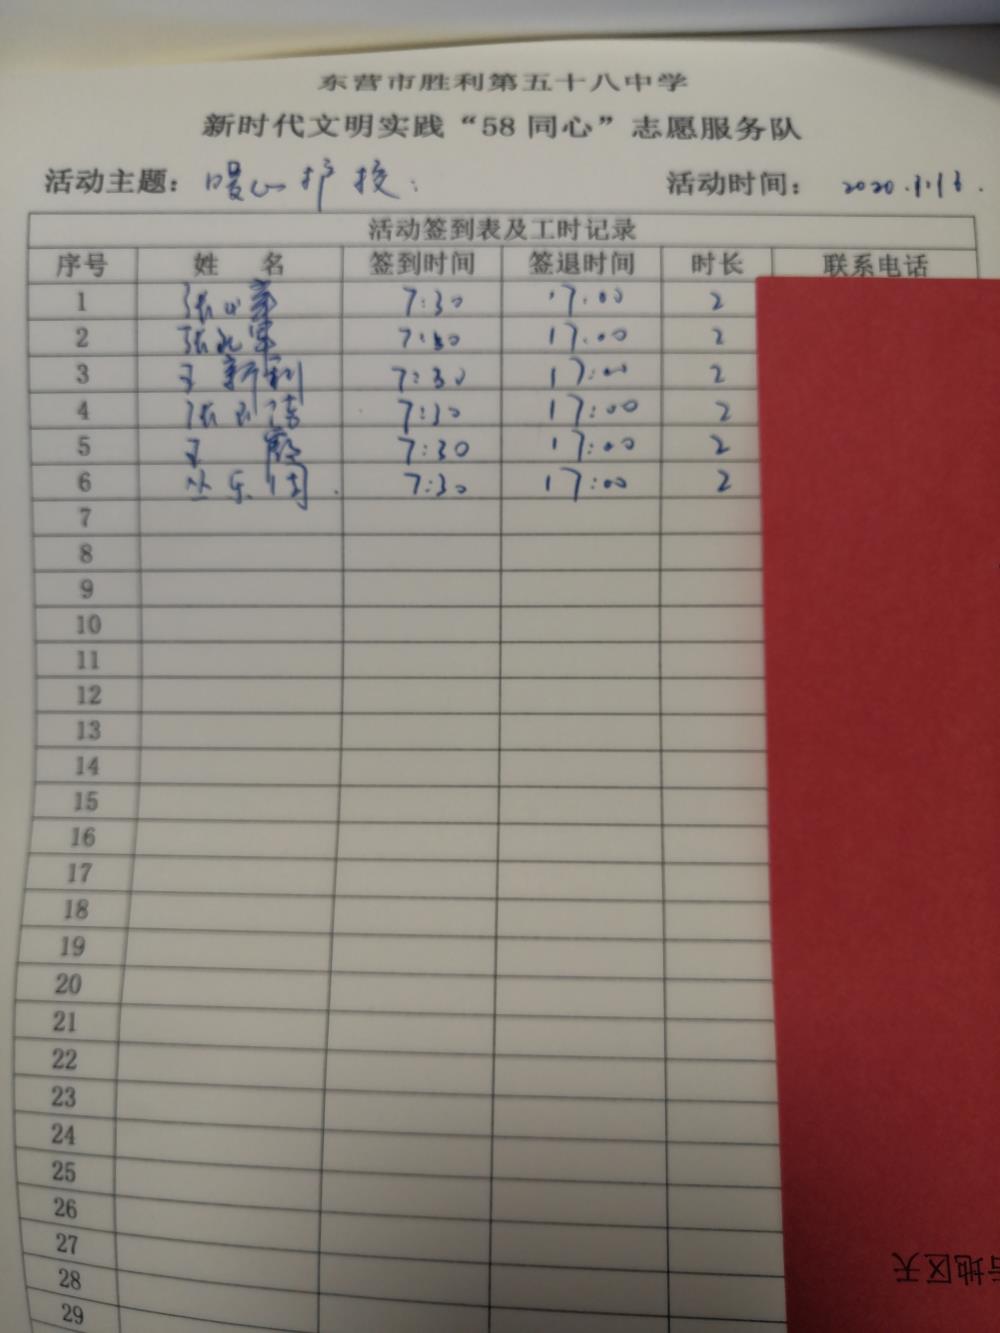 东营市胜利第五十八中学
新时代文明实践“58 同心”志愿服务队
活动主题：暖心护校 活动时间： 2020.
活动签到表及工时记录
序号 姓 名 签到时间 签退时间 时长 联系电话
1 张 7:30 17:00 2
2 张 7:30 17:00 2
3 王新利 7:30 17:00 2
4 张 7:30 17:00 2
5 王 7:30 17:00 2
6 丛乐 7:30 17:00 2
7
8
9
10
11
12
13
14
15
16
17
18
19
20
21
22
23
24
25
26
27
28
29
地区天